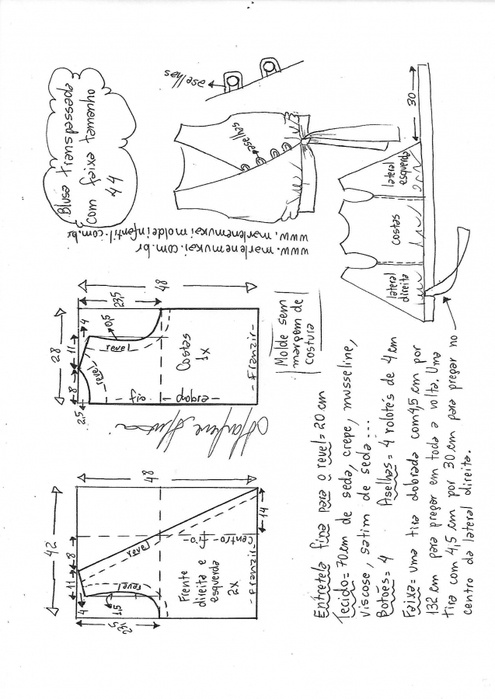 Blusa transpassada
com faixa tamanho
44
aselhas
aselhas
www.marlenemukai.com.br
www.marlenemukaimoldeinfantil.com.br
30
lateral
direita
costas
lateral
esquerda
28
8
11
4
2,5
23,5
48
0,5
revel
revel
Costas
1x
fio
dobra
-Franzir-
Molde sem
margem de
costura
42
11
8
4
23,5
48
1,5
revel
revel
Frente
direita e
esquerda
2x
centro
fio
-Franzir-
14
Entretela fina para o revel= 20 cm
Tecido= 70cm de seda, crepe, musseline,
viscose, satim de seda...
Botões= 4 Aselhas= 4 rolotês de 4cm
Faixa= uma tira dobrada com 4,5 cm por
132 cm para pregar em toda a volta. Uma
tira com 4,5 cm por 30 cm para pregar no
centro da lateral direita.